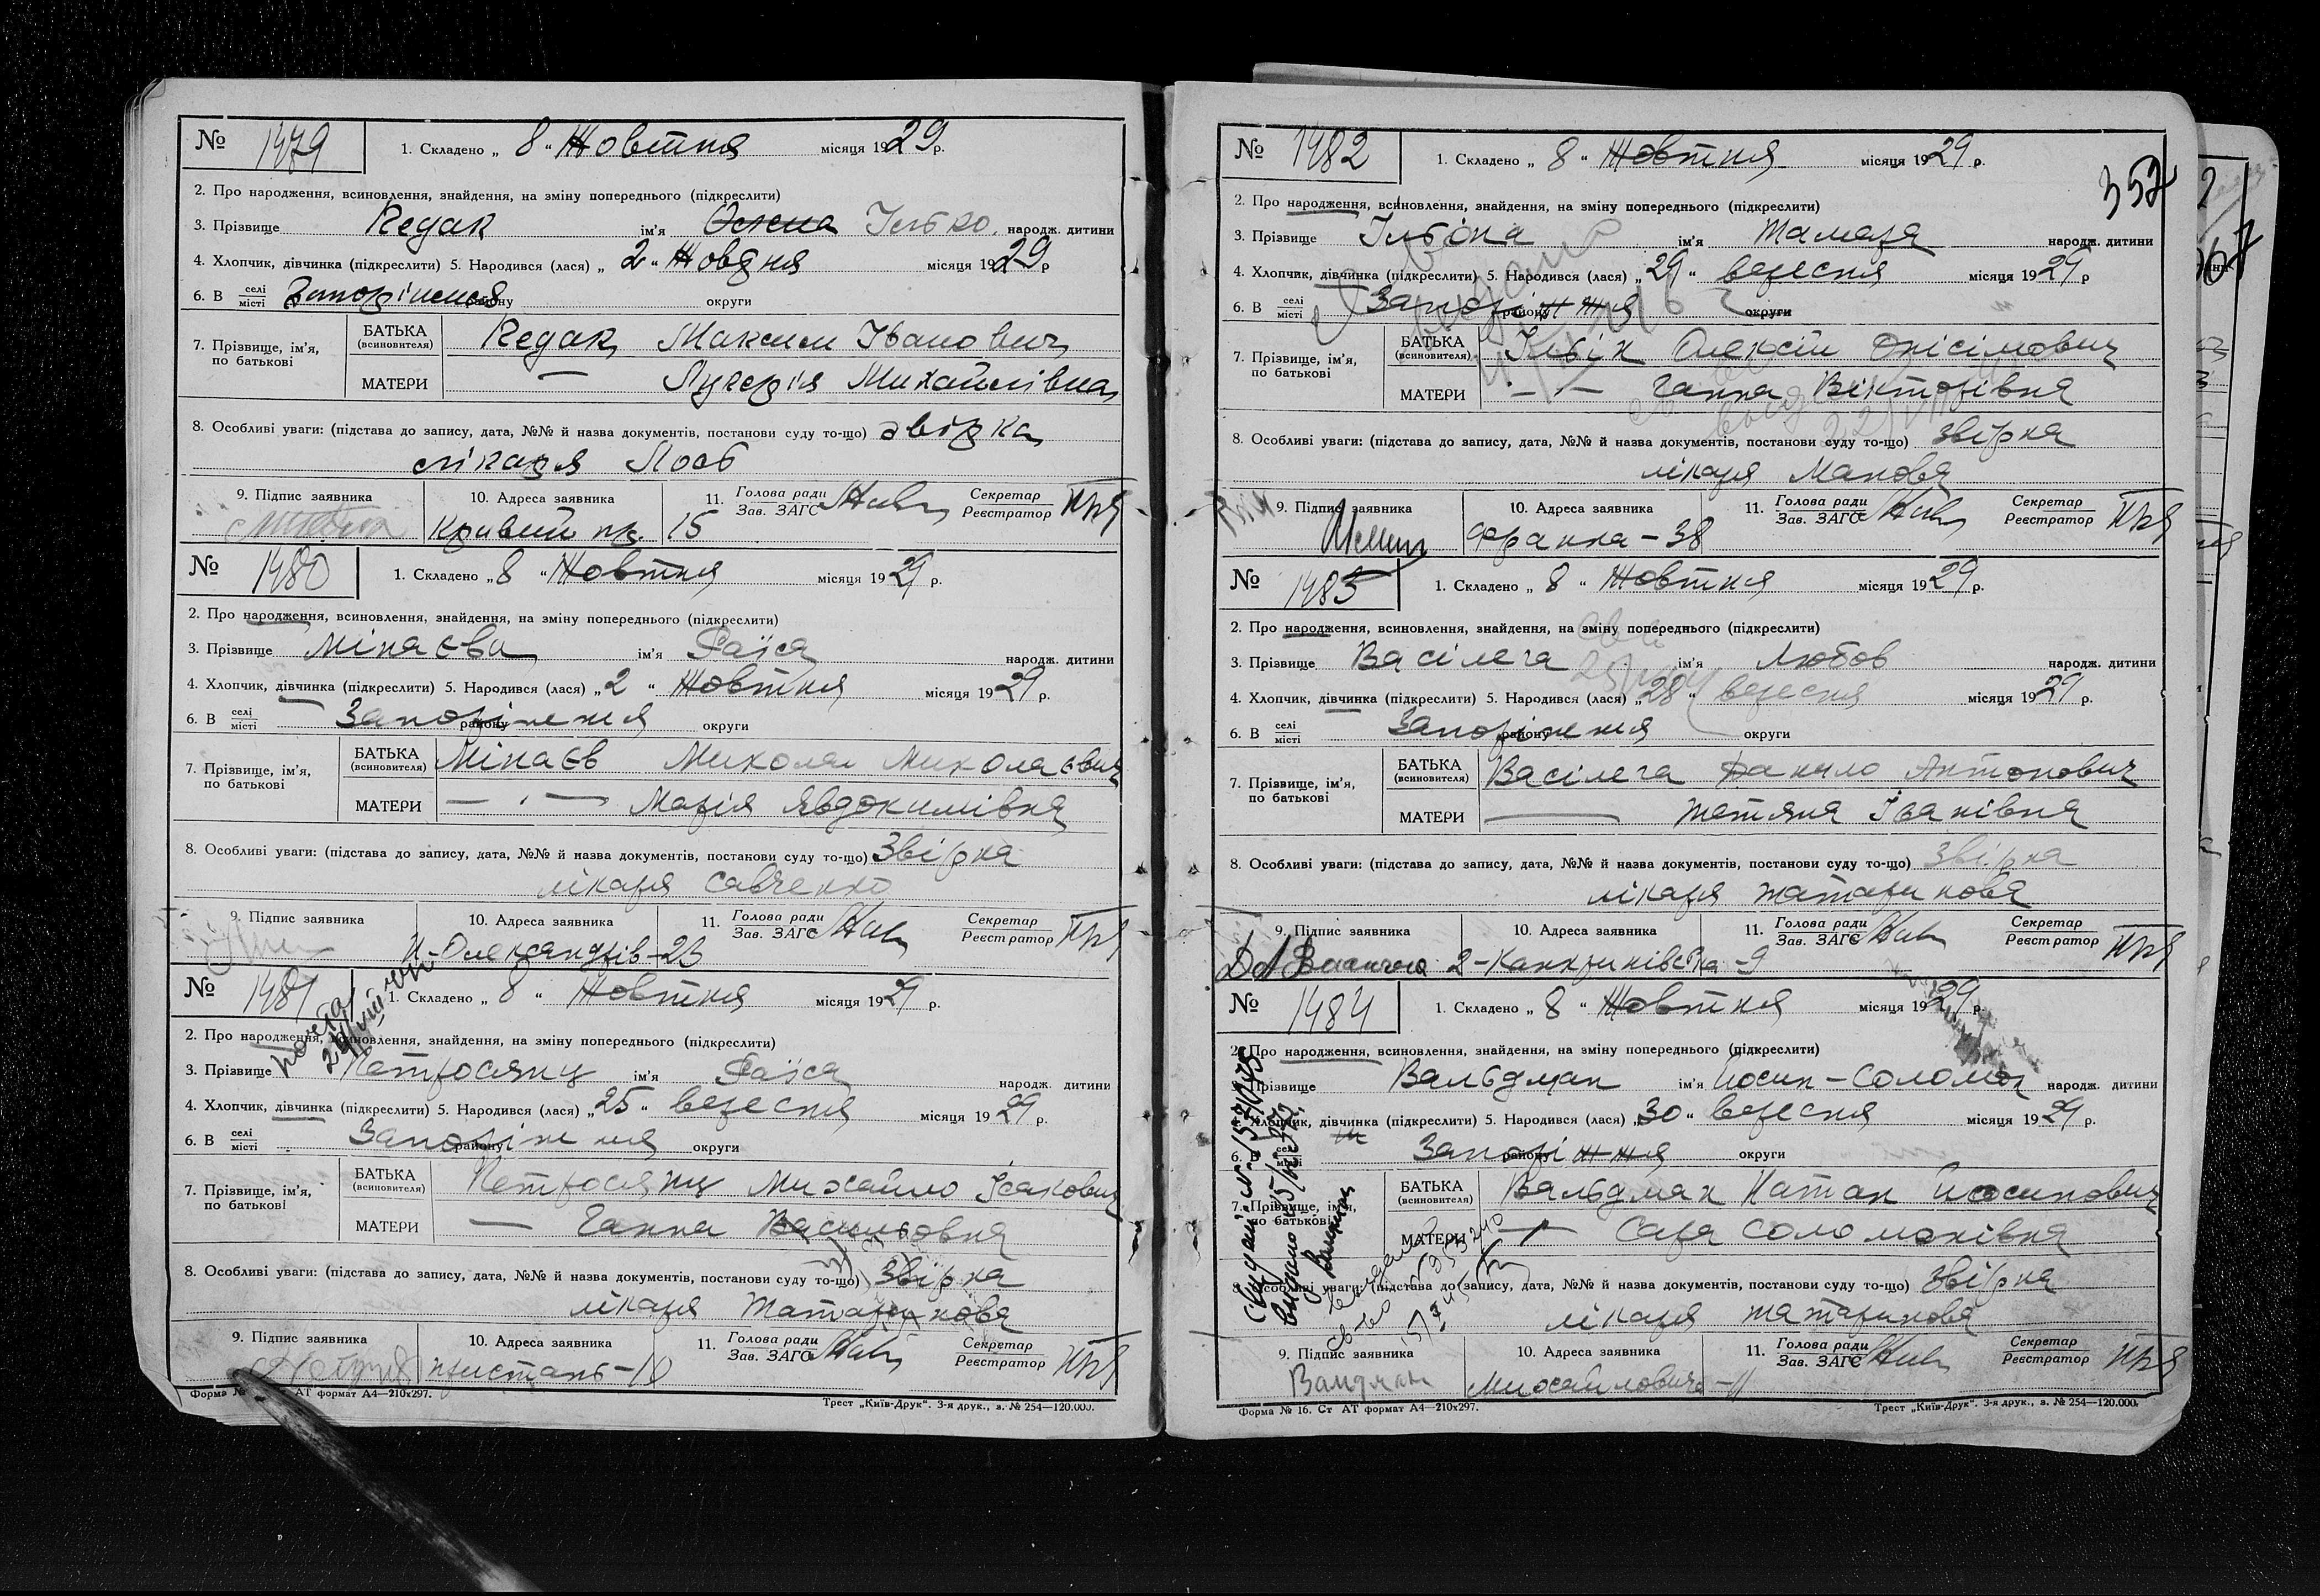 № 1479 1. Складено „ 8 “ Жовтня місяця 1929 р.
2. Про народження, всиновлення, знайдення, на зміну попереднього (підкреслити)
3. Прізвище Редак ім'я Олена Ілько. народж. дитини
4. Хлопчик, дівчинка (підкреслити) 5. Народився (лася) „ 2 “ Жовтня місяця 1929 р
6. В селі місті Запоріжжя району округи
7. Прізвище, ім'я, по батькові
БАТЬКА (всиновителя) Редак Максим Іванович
МАТЕРИ — Лукерія Михайлівна
8. Особливі уваги: (підстава до запису, дата, №№ й назва документів, постанови суду то-що) звірка
лікаря Лооб
9. Підпис заявника 10. Адреса заявника 11. Голова ради Зав. ЗАГС Секретар Реєстратор
Кривий пр. 15
№ 1480 1. Складено „ 8 “ Жовтня місяця 1929 р.
2. Про народження, всиновлення, знайдення, на зміну попереднього (підкреслити)
3. Прізвище Мінаєва ім'я Раїса народж. дитини
4. Хлопчик, дівчинка (підкреслити) 5. Народився (лася) „ 2 “ Жовтня місяця 1929 р.
6. В селі місті Запоріжжя району округи
7. Прізвище, ім'я, по батькові
БАТЬКА (всиновителя) Мінаєв Микола Миколаєвич
МАТЕРИ — " — Марія Явдокимівна
8. Особливі уваги: (підстава до запису, дата, №№ й назва документів, постанови суду то-що) Звірка
лікаря Савченко
9. Підпис заявника 10. Адреса заявника 11. Голова ради Зав. ЗАГС Секретар Реєстратор
Н-Олександрів-23
№ 1481 1. Складено „ 8 “ Жовтня місяця 1929 р.
2. Про народження, всиновлення, знайдення, на зміну попереднього (підкреслити)
3. Прізвище Петросянц ім'я Раїса народж. дитини
4. Хлопчик, дівчинка (підкреслити) 5. Народився (лася) „ 25 “ вересня місяця 1929 р.
6. В селі місті Запоріжжя району округи
7. Прізвище, ім'я, по батькові
БАТЬКА (всиновителя) Петросянц Михайло Ісакович
МАТЕРИ — Ганна Васильовна
8. Особливі уваги: (підстава до запису, дата, №№ й назва документів, постанови суду то-що) Звірка
лікаря Татаринова
9. Підпис заявника 10. Адреса заявника 11. Голова ради Зав. ЗАГС Секретар Реєстратор
Пристань-10
Форма № АТ формат А4—210х297. Трест „Київ-Друк“. 3-я друк., з. № 254—120.000.
357
№ 1482 1. Складено „ 8 “ Жовтня місяця 1929 р.
2. Про народження, всиновлення, знайдення, на зміну попереднього (підкреслити)
3. Прізвище Ільбіна ім'я Тамара народж. дитини
4. Хлопчик, дівчинка (підкреслити) 5. Народився (лася) „ 29 “ вересня місяця 1929 р
6. В селі місті Запоріжжя району округи
7. Прізвище, ім'я, по батькові
БАТЬКА (всиновителя) Ільбін Олексій Онісімович
МАТЕРИ — " — Ганна Вікторівна
8. Особливі уваги: (підстава до запису, дата, №№ й назва документів, постанови суду то-що) звірка
лікаря Манова
9. Підпис заявника 10. Адреса заявника 11. Голова ради Зав. ЗАГС Секретар Реєстратор
Франка-38
№ 1483 1. Складено „ 8 “ Жовтня місяця 1929 р.
2. Про народження, всиновлення, знайдення, на зміну попереднього (підкреслити)
3. Прізвище Васілега ім'я Любов народж. дитини
4. Хлопчик, дівчинка (підкреслити) 5. Народився (лася) „ 28 “ вересня місяця 1929 р.
6. В селі місті Запоріжжя району округи
7. Прізвище, ім'я, по батькові
БАТЬКА (всиновителя) Васілега Данило Антонович
МАТЕРИ — Тетяна Іванівна
8. Особливі уваги: (підстава до запису, дата, №№ й назва документів, постанови суду то-що) звірка
лікаря Татаринова
9. Підпис заявника 10. Адреса заявника 11. Голова ради Зав. ЗАГС Секретар Реєстратор
№ 1484 1. Складено „ 8 “ Жовтня місяця 1929 р.
2. Про народження, всиновлення, знайдення, на зміну попереднього (підкреслити)
Прізвище Вальдман ім'я Йосип-Соломон народж. дитини
Хлопчик, дівчинка (підкреслити) 5. Народився (лася) „ 30 “ вересня місяця 1929 р.
6. В селі місті Запоріжжя району округи
7. Прізвище, ім'я, по батькові
БАТЬКА (всиновителя) Вальдман Натан Йосипович
МАТЕРИ — " — Сара Соломонівна
8. Особливі уваги: (підстава до запису, дата, №№ й назва документів, постанови суду то-що) звірка
лікаря Татаринова
9. Підпис заявника 10. Адреса заявника 11. Голова ради Зав. ЗАГС Секретар Реєстратор
Валдман Михайловича-11
Форма № 16. Ст АТ формат А4—210х297. Трест „Київ-Друк“. 3-я друк., з. № 254—120.000.